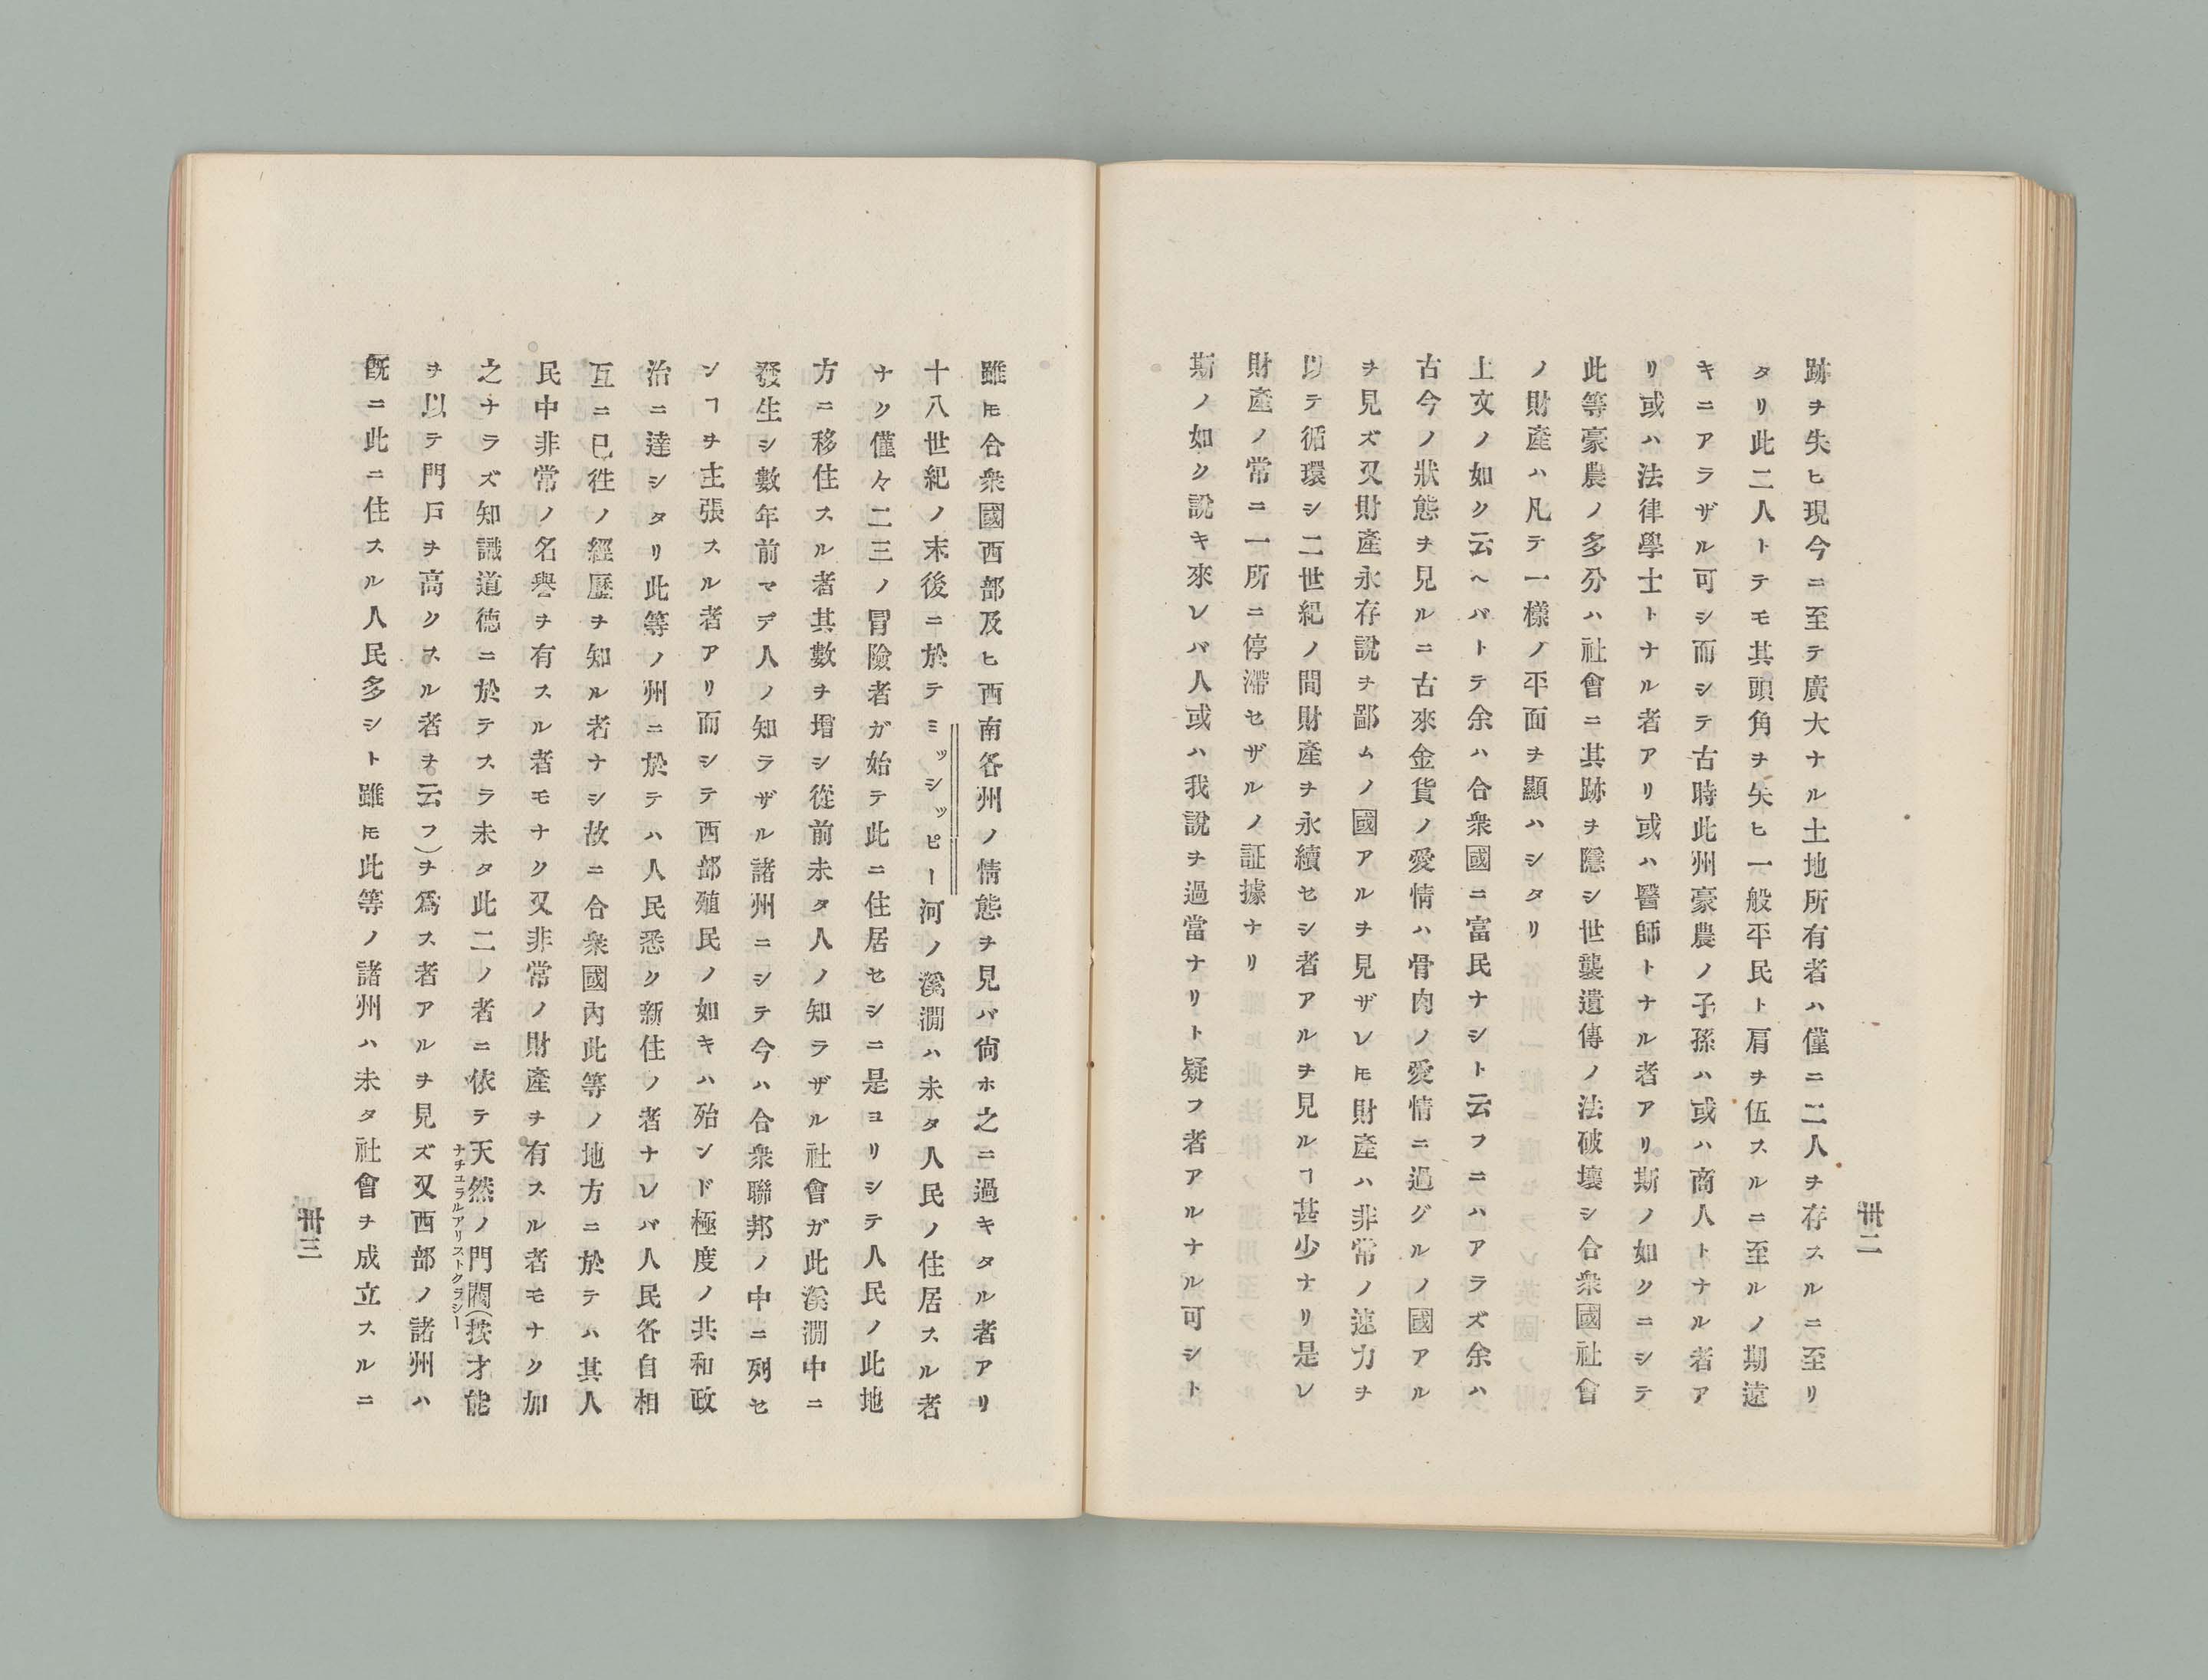 卅二
跡ヲ失ヒ現今ニ至テ廣大ナル土地所有者ハ僅ニ二人ヲ存スルニ至リ
タリ此二人トテモ其頭角ヲ矢ヒ一般平民ト肩ヲ伍スルニ至ルノ期遠
キニアラザル可シ而シテ古時此州豪農ノ子孫ハ或ハ商人トナル者ア
リ或ハ法律學士トナル者アリ或ハ醫師トナル者アリ斯ノ如クニシテ
此等豪農ノ多分ハ社會ニ其跡ヲ隱シ世襲遺傳ノ法破壞シ合衆國社會
ノ財產ハ凡テ一樣ノ平面ヲ顯ハシタリ
上文ノ如ク云ヘバトテ余ハ合衆國ニ富民ナシト云フニハアラズ余ハ
古今ノ狀態ヲ見ルニ古來金貨ノ愛情ハ骨肉ノ愛情ニ過グルノ國アル
ヲ見ズ又財產永存說ヲ鄙ムノ國アルヲ見ザレ𪜈財產ハ非常ノ速力ヲ
以テ循環シ二世紀ノ間財產ヲ永續セシ者アルヲ見ルヿ甚少ナリ是レ
財產ノ常ニ一所ニ停滯セザルノ証據ナリ
斯ノ如ク說キ來レバ人或ハ我說ヲ過當ナリト疑フ者アルナル可シト
雖𪜈合衆國西部及ヒ西南各州ノ情態ヲ見バ尙ホ之ニ過キタル者アリ
十八世紀ノ末後ニ於テミッシッピー河ノ溪澗ハ未タ人民ノ住居スル者
ナク僅々二三ノ冒險者ガ始テ此ニ住居セシニ是ヨリシテ人民ノ此地
方ニ移住スル者其數ヲ增シ從前未タ人ノ知ラザル社會ガ此溪澗中ニ
發生シ數年前マデ人ノ知ラザル諸州ニシテ今ハ合衆聯邦ノ中ニ列セ
ンヿヲ主張スル者アリ而シテ西部殖民ノ如キハ殆ンド極度ノ共和政
治ニ達シタリ此等ノ州ニ於テハ人民悉ク新住ノ者ナレバ人民各自相
互ニ已徃ノ經歷ヲ知ル者ナシ故ニ合衆國內此等ノ地方ニ於テハ其人
民中非常ノ名譽ヲ有スル者モナク又非常ノ財產ヲ有スル者モナク加
之ナラズ知識道德ニ於テスラ未タ此二ノ者ニ依テ天然ノ門閥(按才能
ナチユラルアリストクラシー
ヲ以テ門戶ヲ高クスル者ヲ云フ)ヲ爲ス者アルヲ見ズ又西部ノ諸州ハ
旣ニ此ニ住スル人民多シト雖𪜈此等ノ諸州ハ未タ社會ヲ成立スルニ
卅三